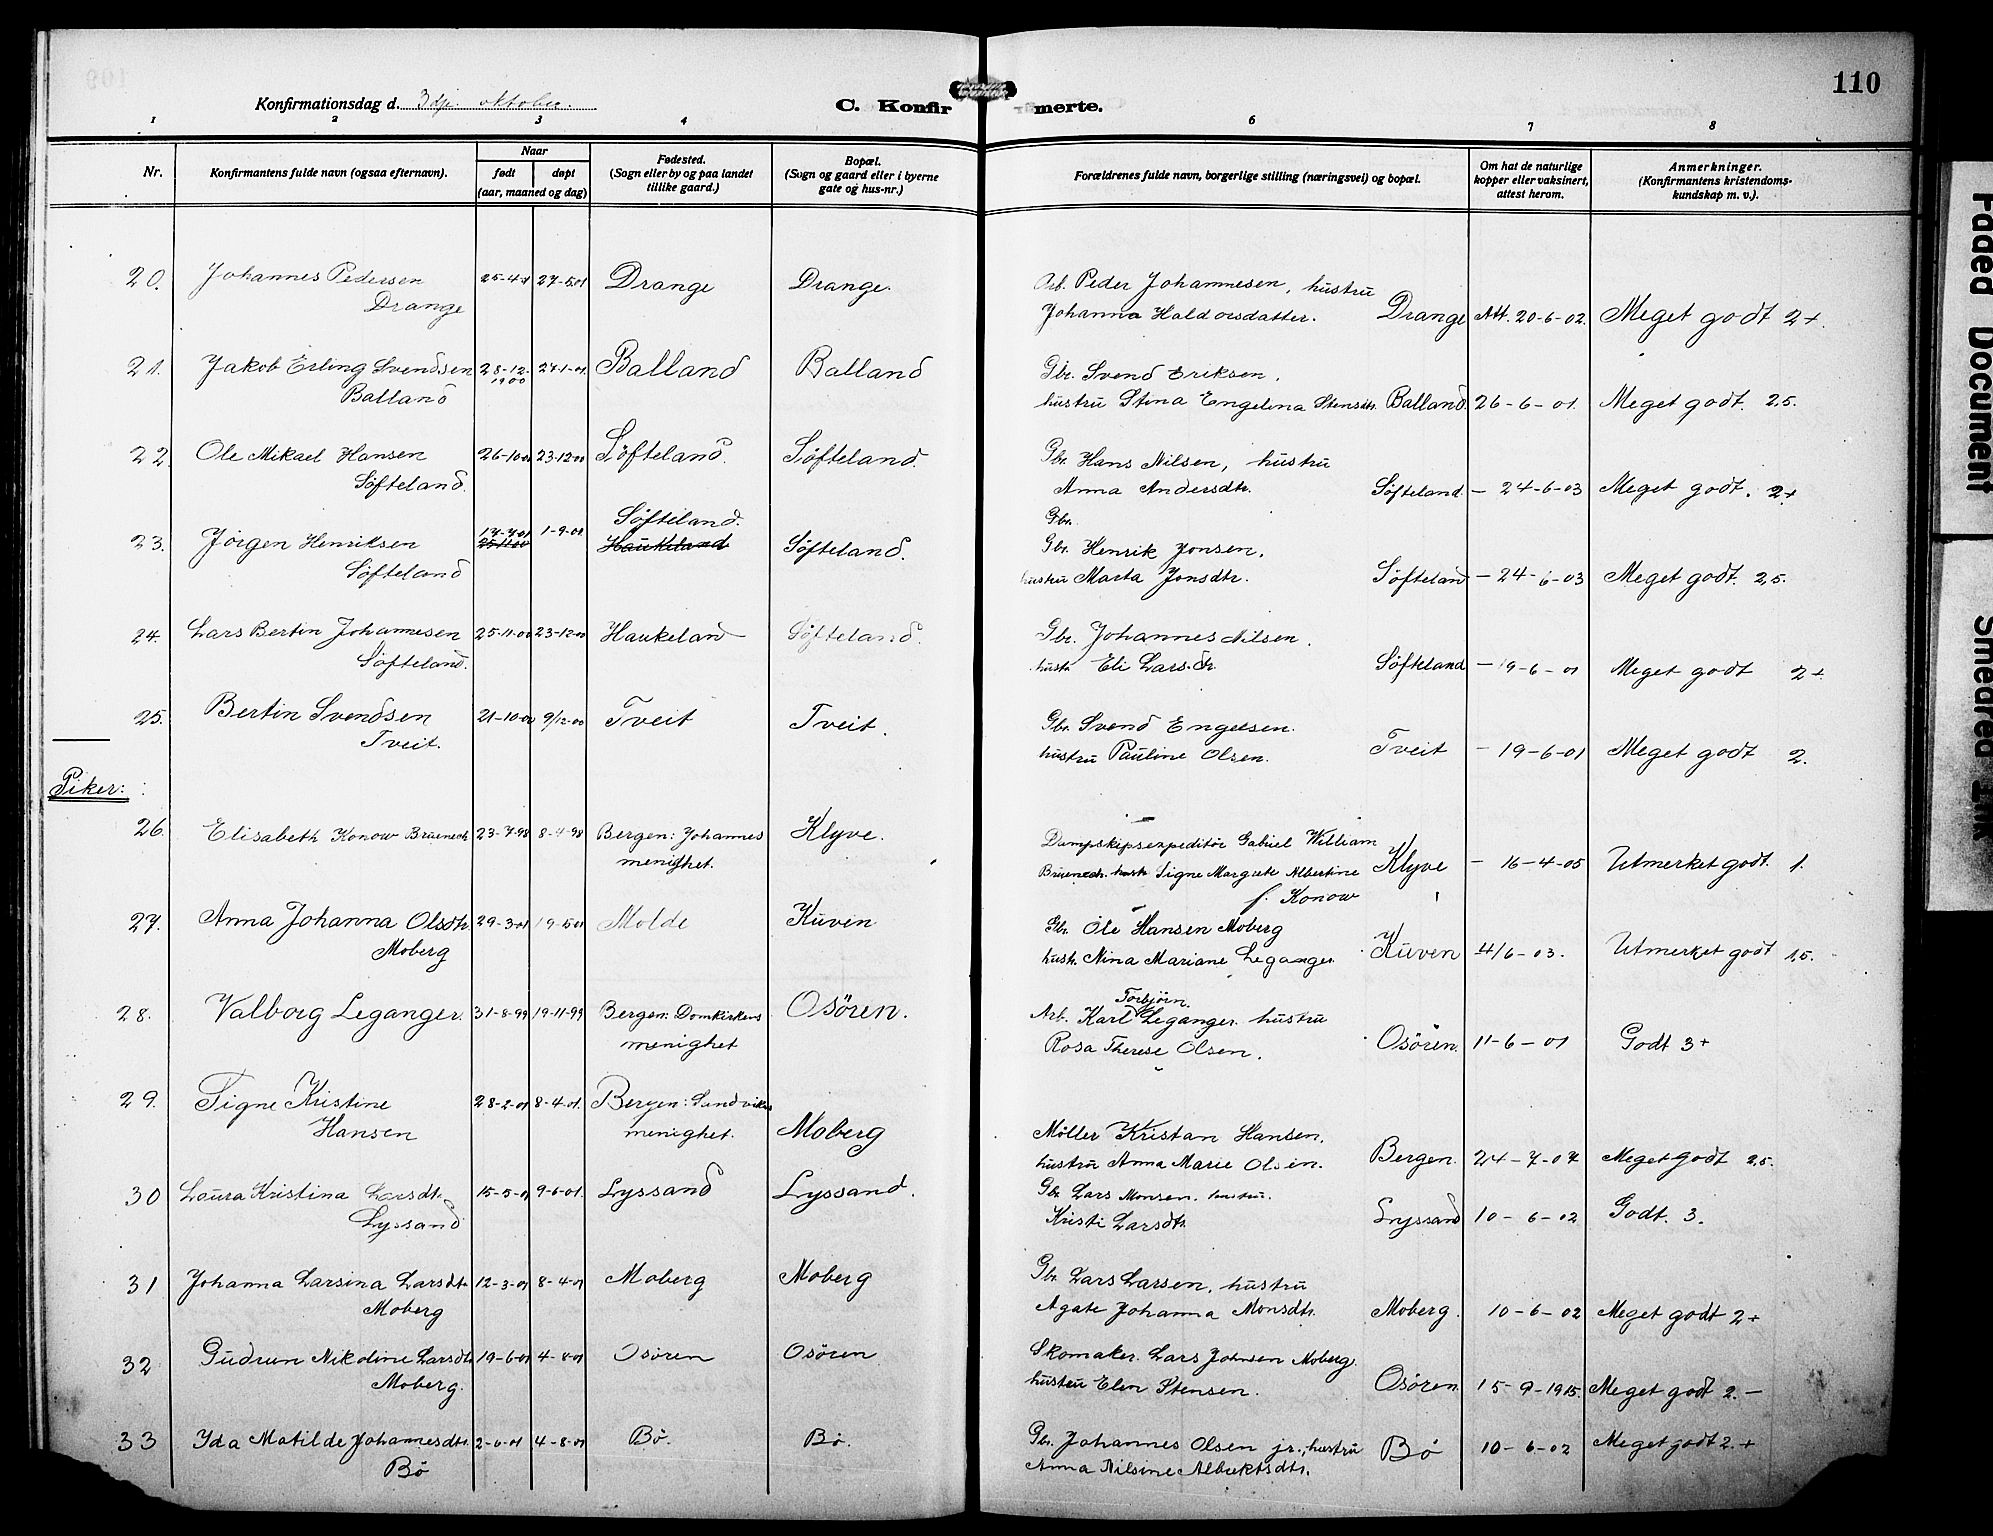 110
Konfirmationsdag d. 3dje oktober.
C. Konfirmerte.
1 2 3 4 6 7 8
Nr.
Konfirmantens fulde navn (ogsaa efternavn).
Naar
født døpt
(aar, maaned og dag)
Fødested.
(Sogn eller by og paa landet
tillike gaard.)
Bopæl.
(Sogn og gaard eller i byerne
gate og hus-nr.)
Forældrenes fulde navn, borgerlige stilling (næringsvei) og bopæl.
Om hat de naturlige
kopper eller vaksinert,
attest herom.
Anmerkninger.
(Konfirmantens kristendoms-
kundskap m. v.).
20. Johannes Pedersen 25-4-01 27-5-01 Drange Drange. Arb. Peder Johannesen, hustru
Drange Johanna Haldorsdatter. Drange Att. 20-6-02. Meget godt 2+.
21. Jakob Erling Svendsen 28-12- 27-1-01. Balland Balland Gbr. Svend Eriksen,
1900
Balland hustru Stina Engelina Stensdtr. Balland. 26-6-01. Meget godt. 2,5.
22. Ole Mikael Hansen 26-10-00 23-12-00 Søfteland. Søfteland. Gbr. Hans Nilsen, hustru
Søfteland. Anna Andersdtr. Søfteland. - 24-6-03 Meget godt. 2+
Søfteland. Gbr.
23. Jørgen Henriksen 17-7-01 1-9-01 Haukeland Søfteland. Gbr. Henrik Jonsen,
25-11-00
Søfteland hustru Marta Jonsdtr. Søfteland - 24-6-03 Meget godt. 2,5.
24. Lars Bertin Johannesen 25-11-00 23-12-00 Haukeland Søfteland. Gbr. Johannes Nilsen.
Søfteland. hustr. Eli Larsdtr Søfteland - 19-6-01 Meget godt 2+
25. Bertin Svendsen 21-10-00 9/12-00 Tveit Tveit. Gbr. Svend Engelsen.
Tveit. hustru Pauline Olsen. Tveit - 19-6-01 Meget godt 2.
Piker:
26. Elisabeth Konow Bruenech 23-7-98 8-4-98 Bergen: Johannes Klyve. Dampskipsexpeditør Gabriel William
menighet. Bruenech. hustr. Signe Margrete Albertine Klyve - 16-4-05 Utmerket godt. 1.
f. Konow
27. Anna Johanna Olsdtr. 29-3-01 19-5-01 Molde Kuven Gbr. Ole Hansen Moberg
Moberg hustr. Nina Mariane Leganger Kuven 4/6-03. Utmerket godt 1,5.
Torbjørn.
28. Valborg Leganger. 31-8-99 19-11-99 Bergen: Domkirkens Osøren. Arb. Karl Leganger. hustru
menighet Rosa Therese Olsen. Osøren. 11-6-01 Godt 3+
29. Signe Kristine 28-2-01 8-4-01. Bergen: Sandvikens
Hansen menighet. Moberg Møller Kristan Hansen,
hustru Anna Marie Olsen. Bergen. 24-7-07 Meget godt 2,5.
30 Laura Kristina Larsdtr. 15-5-01 9-6-01. Lyssand Lyssand. Gbr. Lars Monsen. hustru.
Lyssand Kristi Larsdtr. Lyssand 10-6-02 Godt. 3.
31 Johanna Larsina Larsdtr. 12-3-01 8-4-01 Moberg Moberg Gbr. Lars Larsen, hustru
Moberg Agate Johanna Monsdtr. Moberg. 10-6-02 Meget godt 2+
32 Gudrun Nikoline Larsdtr. 19-6-01 4-8-01 Osøren Osøren Skomaker. Lars Johnsen Moberg.
Moberg. hustru Elen Stensen. Osøren. 15-9-1915. Meget godt 2.-
33 Yda Matilde Johannesdtr. 2-6-01 4-8-01 Bø. Bø. Gbr. Johannes Olsen jr., hustru
Bø Anna Nilsine Albrektsdtr. Bø 10-6-02 Meget godt 2.+
Faded Document
Smeared Ink